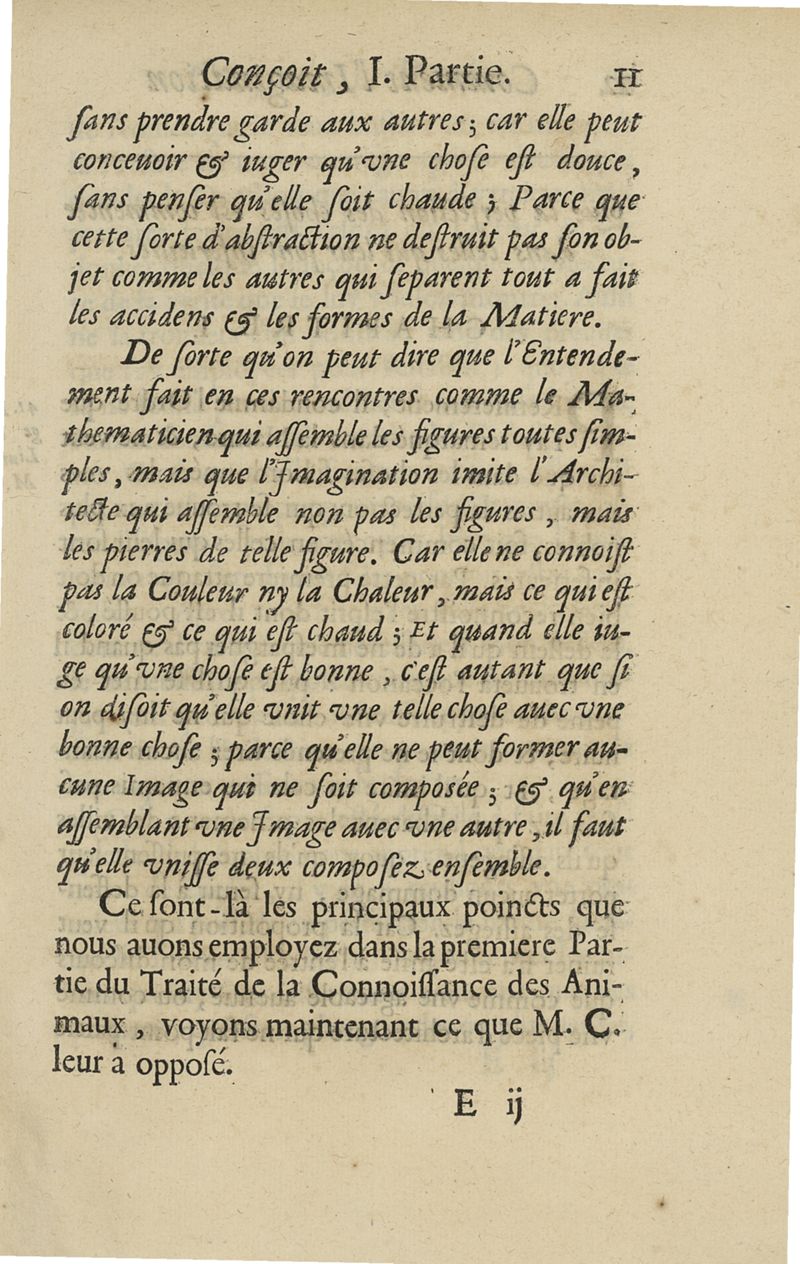 Conçoit, I. Partie. 11
ſans prendre garde aux autres; car elle peut
conceuoir & iuger qu'vne choſe eſt douce,
ſans penſer qu'elle ſoit chaude; Parce que
cette ſorte d'abſtraction ne deſtruit pas ſon ob-
jet comme les autres qui ſeparent tout a fait
les accidens & les formes de la Matiere.
De ſorte qu'on peut dire que l'Entende-
ment fait en ces rencontres comme le Ma-
thematicien qui aſſemble les figures toutes ſim-
ples, mais que l'Imagination imite l'Archi-
tecte qui aſſemble non pas les figures, mais
les pierres de telle figure. Car elle ne connoiſt
pas la Couleur ny la Chaleur, mais ce qui eſt
coloré & ce qui eſt chaud; Et quand elle iu-
ge qu'vne choſe eſt bonne, c'eſt autant que ſi
on diſoit qu'elle vnit vne telle choſe auec vne
bonne choſe; parce qu'elle ne peut former au-
cune Image qui ne ſoit composée; & qu'en
aſſemblant vne Image auec vne autre, il faut
qu'elle vniſſe deux compoſez enſemble.
Ce ſont-là les principaux poincts que
nous auons employez dans la premiere Par-
tie du Traité de la Connoiſſance des Ani-
maux, voyons maintenant ce que M. C.
leur à oppoſé.
E ij